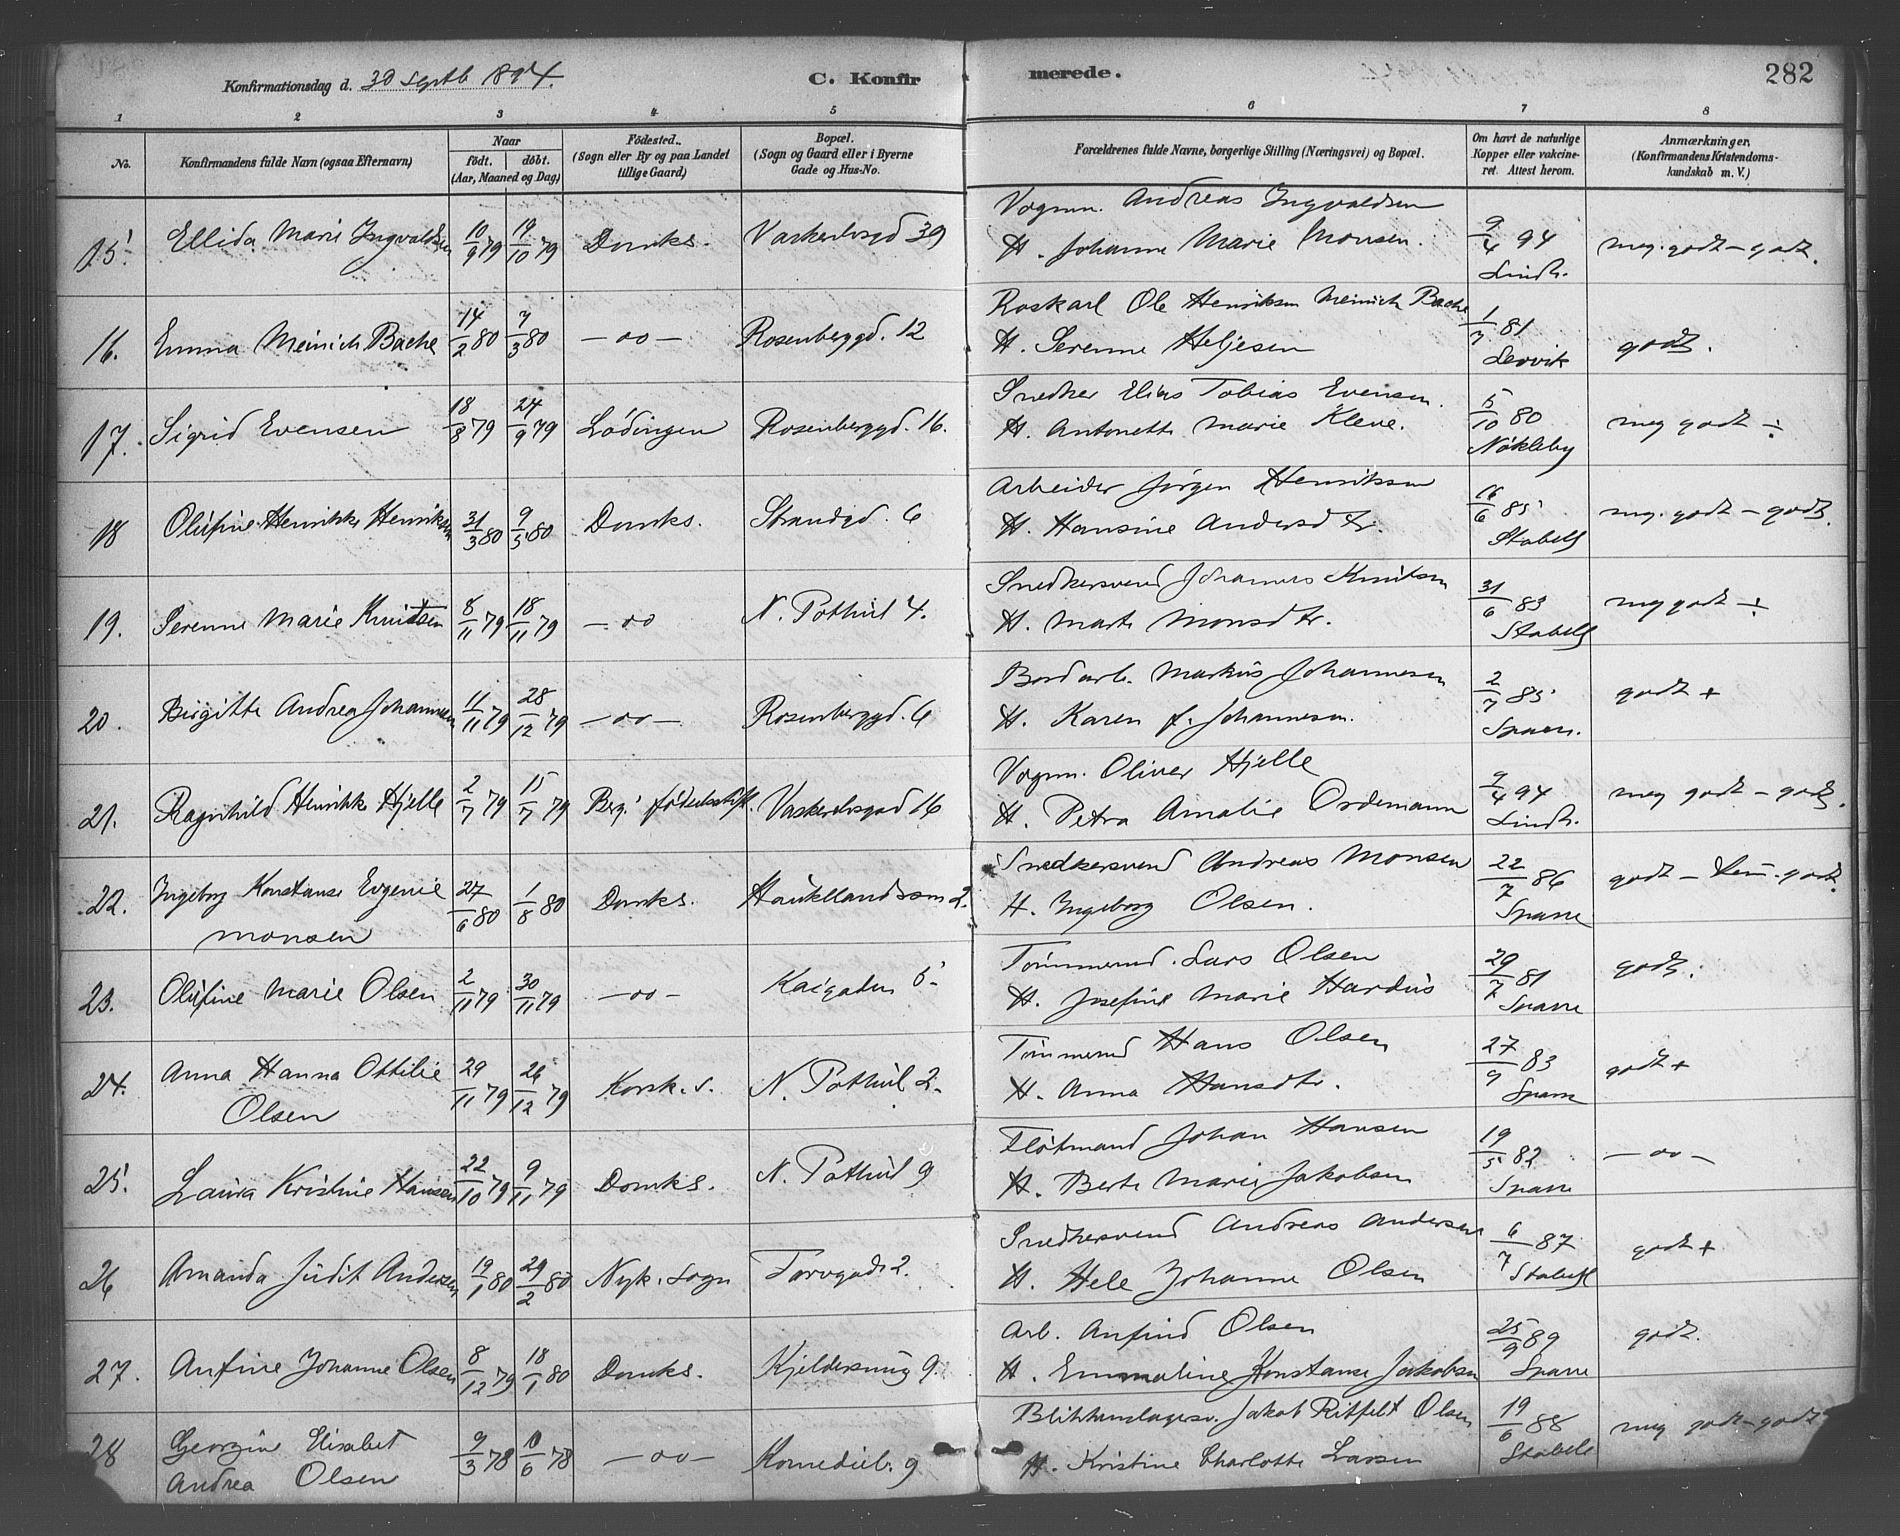 Konfirmationsdag d. 30 Septb 1894. C. Konfirmerede. 282
1 2 3 4 5 6 7 8
No. Konfirmandens fulde Navn (ogsaa Efternavn) Naar født. døbt. (Aar, Maaned og Dag) Fødested. (Sogn eller By og paa Landet tillige Gaard) Bopæl. (Sogn og Gaard eller i Byerne Gade og Hus-No. Forældrenes fulde Navne, borgerlige Stilling (Næringsvei) og Bopæl. Om havt de naturlige Kopper eller vakcineret. Attest herom. Anmærkninger, (Konfirmandens Kristendomskundskab m. V.)
15. Ellida Marie Ingvaldsen 10/9 79 19/10 79 Domks. Vaskerelvsgd 39 Vognm. Andreas Ingvaldsen
H. Johanne Marie Monsen. 9/4 94 Lindh. meg. godt – godt.
16. Emma Meinich Bache 14/2 80 7/3 80 –oo– Rosenberggd. 12 Roskarl Ole Henriksen Meinich Bache
H. Serenne Heljesen 1/7 81 Lervik godt.
17. Sigrid Evensen 18/8 79 24/9 79 Lødingen Rosenberggd. 16. Snedker Elias Tobias Evensen.
H. Antonette Marie Kleve. 5/10 80 Nøkleby meg godt ÷
18 Olufine Henrikke Henriksen 31/3 80 9/5 80 Domks. Strandgd. 6 Arbeider Jørgen Henriksen
H. Hansine Andersdtr. 16/6 85 Stabell meg. godt – godt.
19. Serenne Marie Knutsen 8/11 79 18/11 79 –oo N. Pothul 4. Snedkersvend Johannes Knutsen
H. Marte Monsdtr. 31/6 83 Stabell meg godt ÷
20. Birgitte Andrea Johannesen 11/11 79 28/12 79 –oo– Rosenberggd. 6 Bordarb. Markus Johannesen
H. Karen f. Johannesen. 2/7 85 Sparre. godt +
21. Ragnhild Henrikke Hjelle 2/7 79 15/7 79 Berg. fødselsstift. Vaskerelvsgad 16 Vognm. Oliver Hjelle
H. Petra Amalie Ordemann 9/4 94 Lindh. meg godt – godt.
22. Ingeborg Konstanse Evgenie
Monsen 27/6 80 1/8 80 Domks. Haukellandssm 2. Snedkersvend Andreas Monsen
H. Ingeborg Olsen. 22/7 86 Sparre godt – tem. godt.
23. Olufine Marie Olsen 2/11 79 30/11 79 –oo– Kaigaden 5 Tømmermd. Lars Olsen
H. Josefine Marie Hardus 29/7 81 Sparre godt.
24. Anna Hanna Ottilie
Olsen 29/11 79 26/12 79 Korsk. s. N. Pothul 2. Tømmermd Hans Olsen
H. Anna Hansdtr. 27/9 83 Sparre godt +
25. Laura Kristine Hansen 22/10 79 9/11 79 Domks. N. Pothul 9 Fløtmand Johan Hansen
H. Berte Marie Jakobsen 19/5 82 Sparre –oo–
26 Amanda Judit Andersen 19/1 80 29/2 80 Nyk. sogn Torvgad. 2. Snedkersvend Andreas Andersen
H. Hele Johanne Olsen 6/7 87 Stabell godt +
27. Anfine Johanne Olsen 8/12 79 18/1 80 Domks. Kjeldersmug 9. Arb. Anfind Olsen
H. Emmaline Konstanse Jakobsen 25/9 89 Sparre godt.
28 Georgine Elisabet
Andrea Olsen 9/3 78 10/6 78 –oo– Komedieb. 9 Blikkenslagersv. Jakob Ritfelt Olsen
H. Kristine Charlotte Larsen 19/6 88 Stabell meg godt – godt